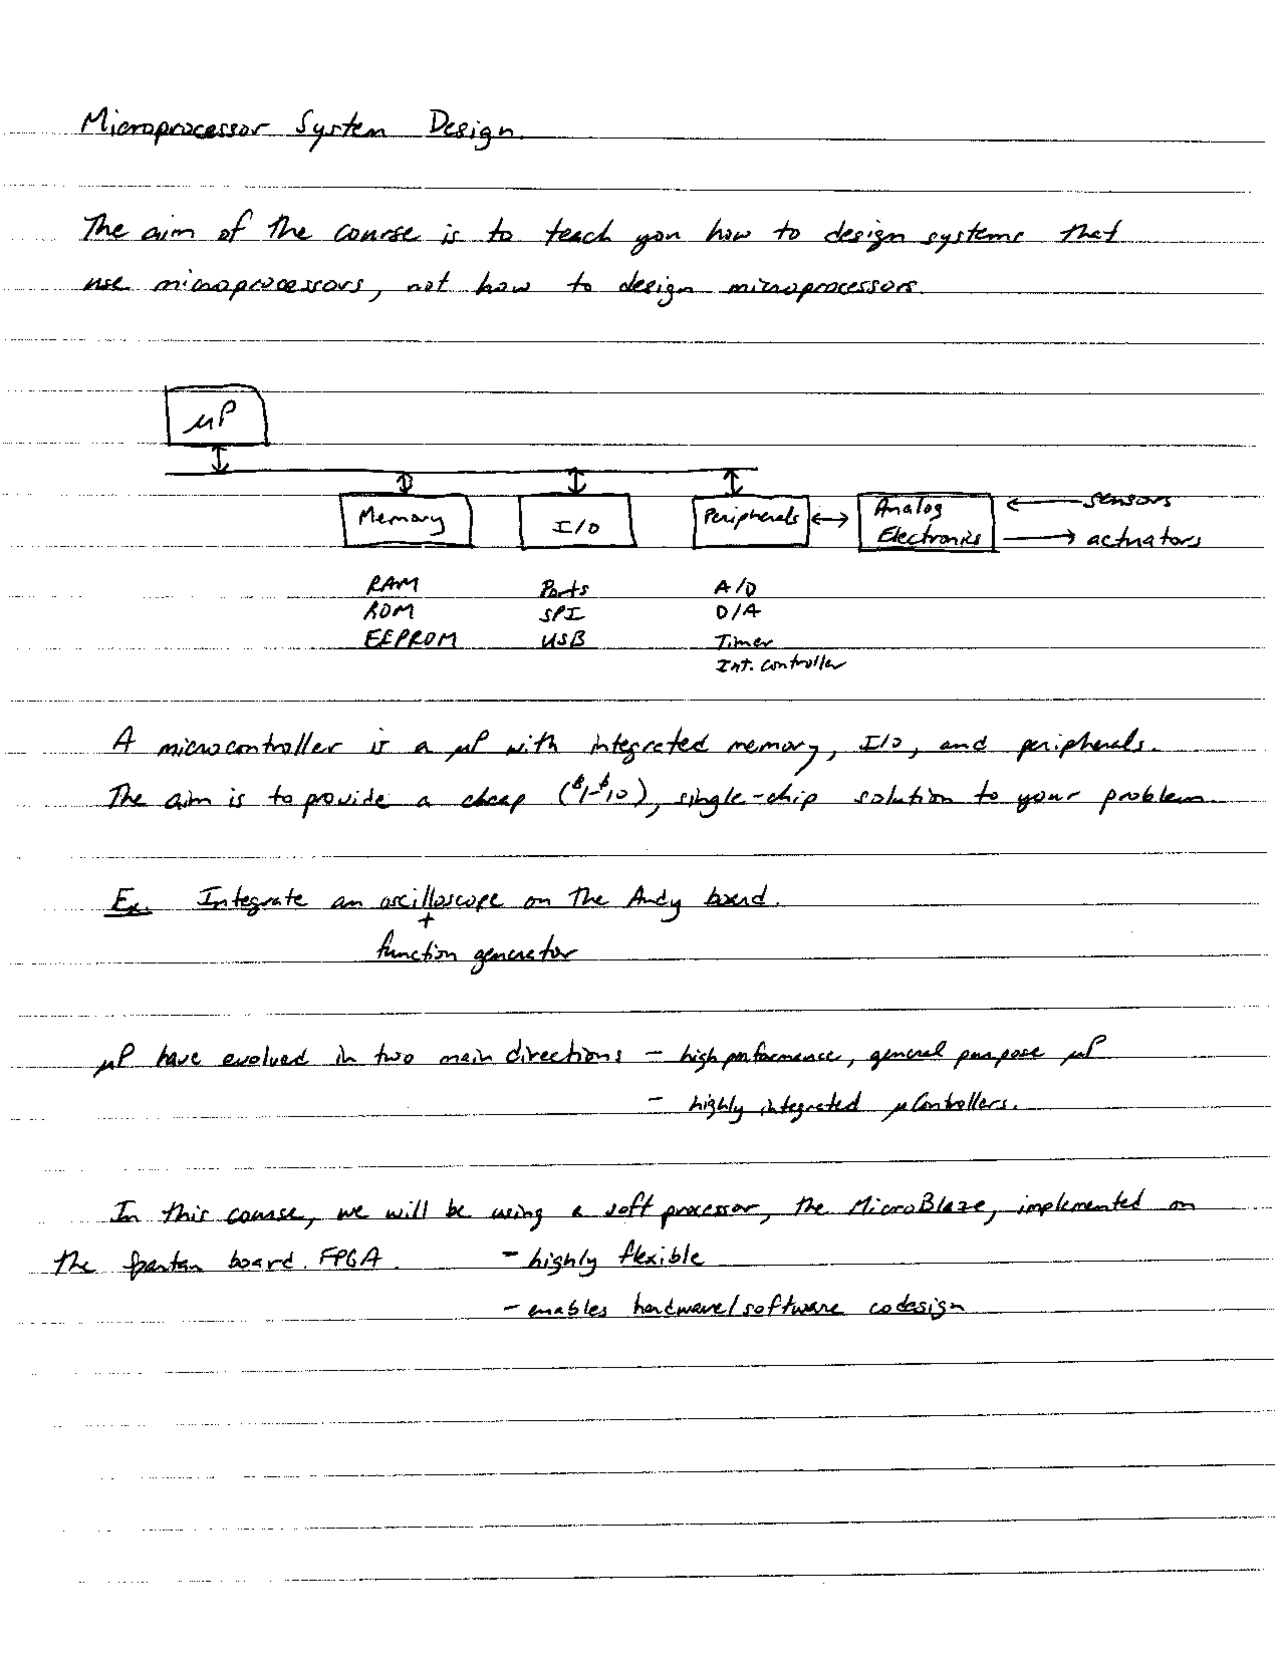 Microprocessor System Design.
The aim of the course is to teach you how to design systems that
use microprocessors, not how to design microprocessors.
µP
Memory
I/O
Peripherals
Analog
Electronics
sensors
actuators
RAM
ROM
EEPROM
Ports
SPI
USB
A/D
D/A
Timer
Int. controller
A microcontroller is a µP with integrated memory, I/O, and peripherals.
The aim is to provide a cheap ($1-$10), single-chip solution to your problem.
Ex. Integrate an oscilloscope on the Andy board.
+
function generator
µP have evolved in two main directions - high performance, general purpose µP
- highly integrated µControllers.
In this course, we will be using a soft processor, the MicroBlaze, implemented on
the Spartan board FPGA.
- highly flexible
- enables hardware/software codesign